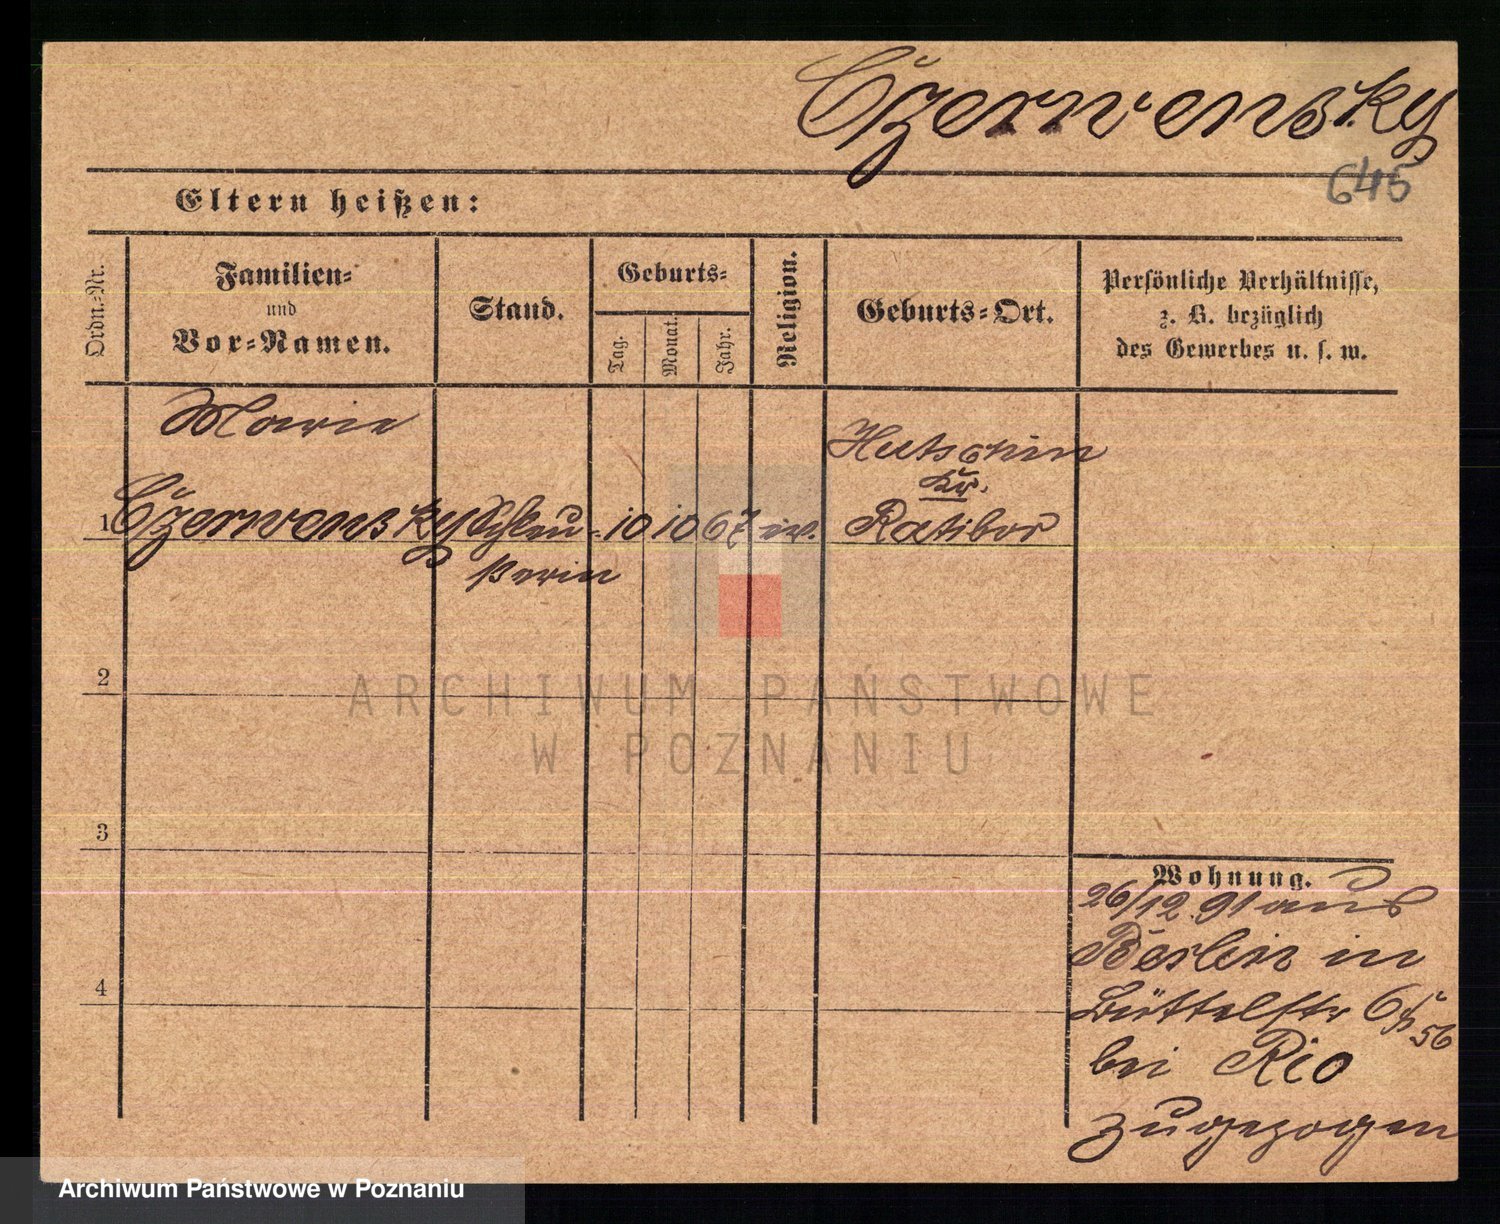 Czerwensky
645
Eltern heißen:
Ordn.-Nr.
Familien-
und
Vor-Namen.
Stand.
Geburts-
Tag.
Monat.
Jahr.
Religion.
Geburts-Ort.
Persönliche Verhältnisse,
z. B. bezüglich
des Gewerbes u. s. w.
Marie
1 Czerwensky
10 10 67 ev.
Hutschin
Kr.
Ratibor
2
3
4
Wohnung.
26/12 91 aus
Berlin in
Büttelstr 6
56
bei Rio
zugezogen
ARCHIWUM PAŃSTWOWE
W POZNANIU
Archiwum Państwowe w Poznaniu